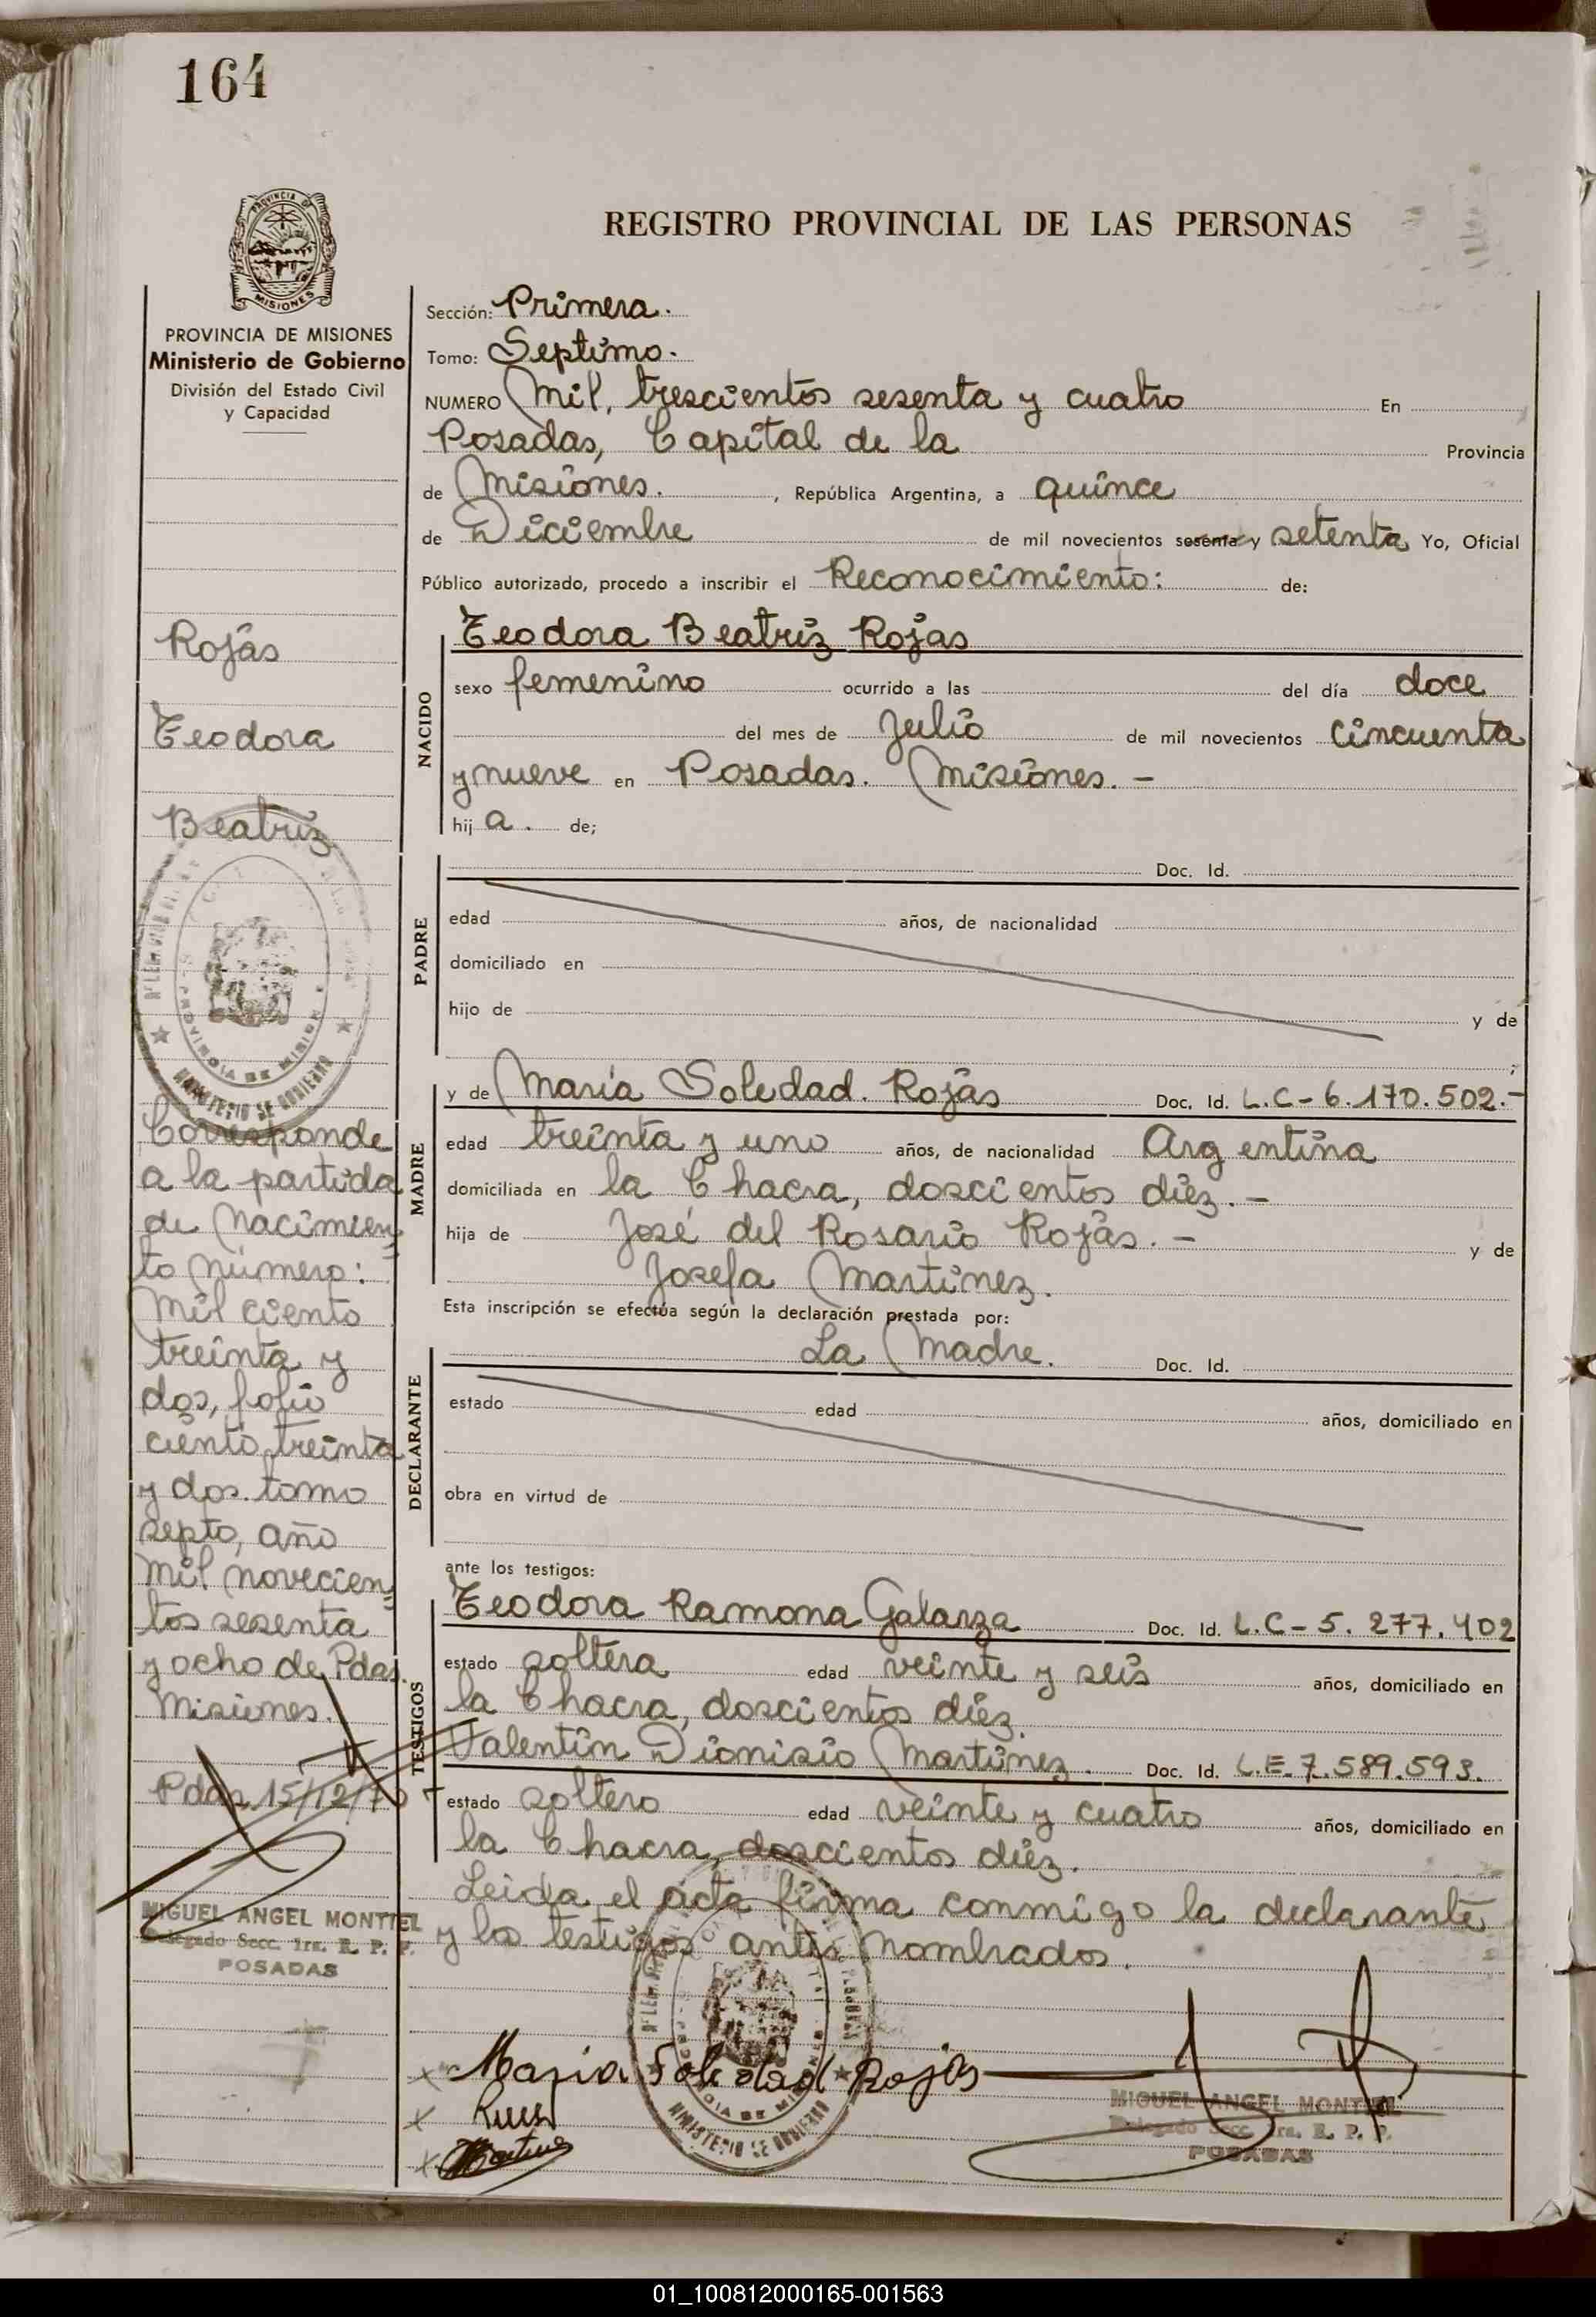 164
PROVINCIA DE MISIONES
Ministerio de Gobierno
División del Estado Civil
y Capacidad
REGISTRO PROVINCIAL DE LAS PERSONAS
Sección: Primera.
Tomo: Septimo.
NUMERO Mil, trescientos sesenta y cuatro En
Posadas, Capital de la Provincia
de Misiones. , República Argentina, a quince
de Diciembre de mil novecientos sesenta y setenta Yo, Oficial
Público autorizado, procedo a inscribir el Reconocimiento: de:
Rojas
Teodora
Beatriz
Corresponde
a la partida
de Nacimien
to número:
Mil ciento
treinta y
dos, folio
ciento treinta
y dos. tomo
septo, año
Mil novecien
tos sesenta
y ocho de Pdas.
Misiones.
Pdas. 15/12/70
MIGUEL ANGEL MONTIEL
Delegado Secc. 1ra. R. P. P.
POSADAS
NACIDO
Teodora Beatriz Rojas
sexo femenino ocurrido a las del día doce
del mes de Julio de mil novecientos cincuenta
y nueve en Posadas. Misiones. -
hij a. de;
PADRE
Doc. Id.
edad años, de nacionalidad
domiciliado en
hijo de y de
;
MADRE
y de María Soledad. Rojas Doc. Id. L.C - 6.170.502.-
edad treinta y uno años, de nacionalidad Argentina
domiciliada en la Chacra, doscientos diez. -
hija de José del Rosario Rojas. - y de
Josefa Martinez.
Esta inscripción se efectúa según la declaración prestada por:
DECLARANTE
La Madre. Doc. Id.
estado edad años, domiciliado en
obra en virtud de
ante los testigos:
TESTIGOS
Teodora Ramona Galarza Doc. Id. L.C - 5. 277. 402
estado soltera edad veinte y seis años, domiciliado en
la Chacra, doscientos diez.
Valentin Dionisio Martinez. Doc. Id. L.E. 7.589.593.
estado soltero edad veinte y cuatro años, domiciliado en
la Chacra, doscientos diez.
Leida el acta firma conmigo la declarante
y los testigos antes nombrados.
Maria Soledad Rojas
MIGUEL ANGEL MONTIEL
Delegado Secc. 1ra. R. P. P.
POSADAS
01_100812000165-001563